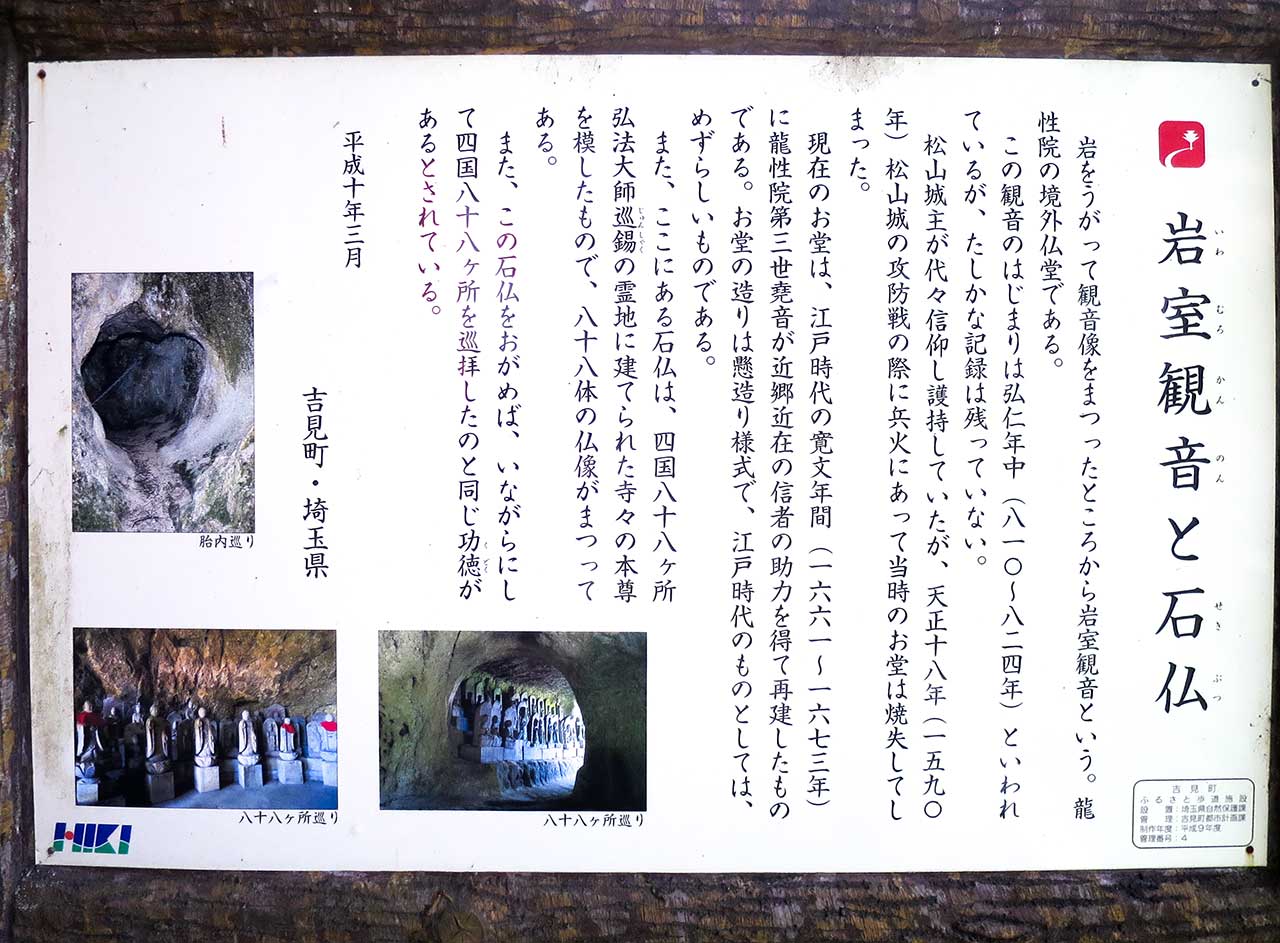 岩室観音と石仏
いわ むろ かん のん せき ぶつ
岩をうがって観音像をまつったところから岩室観音という。龍
性院の境外仏堂である。
この観音のはじまりは弘仁年中(八一〇〜八二四年)といわれ
ているが、たしかな記録は残っていない。
松山城主が代々信仰し護持していたが、天正十八年(一五九〇
年)松山城の攻防戦の際に兵火にあって当時のお堂は焼失してし
まった。
現在のお堂は、江戸時代の寛文年間(一六六一〜一六七三年)
に龍性院第三世堯音が近郷近在の信者の助力を得て再建したもの
である。お堂の造りは懸造り様式で、江戸時代のものとしては、
めずらしいものである。
また、ここにある石仏は、四国八十八ヶ所
弘法大師巡錫の霊地に建てられた寺々の本尊
じゅんしゃく
を模したもので、八十八体の仏像がまつって
ある。
また、この石仏をおがめば、いながらにし
て四国八十八ヶ所を巡拝したのと同じ功徳が
くどく
あるとされている。
平成十年三月
吉見町・埼玉県
胎内巡り
八十八ヶ所巡り
八十八ヶ所巡り
HIKI
吉見町
ふるさと歩道施設
設置:埼玉県自然保護課
管理:吉見町都市計画課
制作年度:平成9年度
管理番号:4